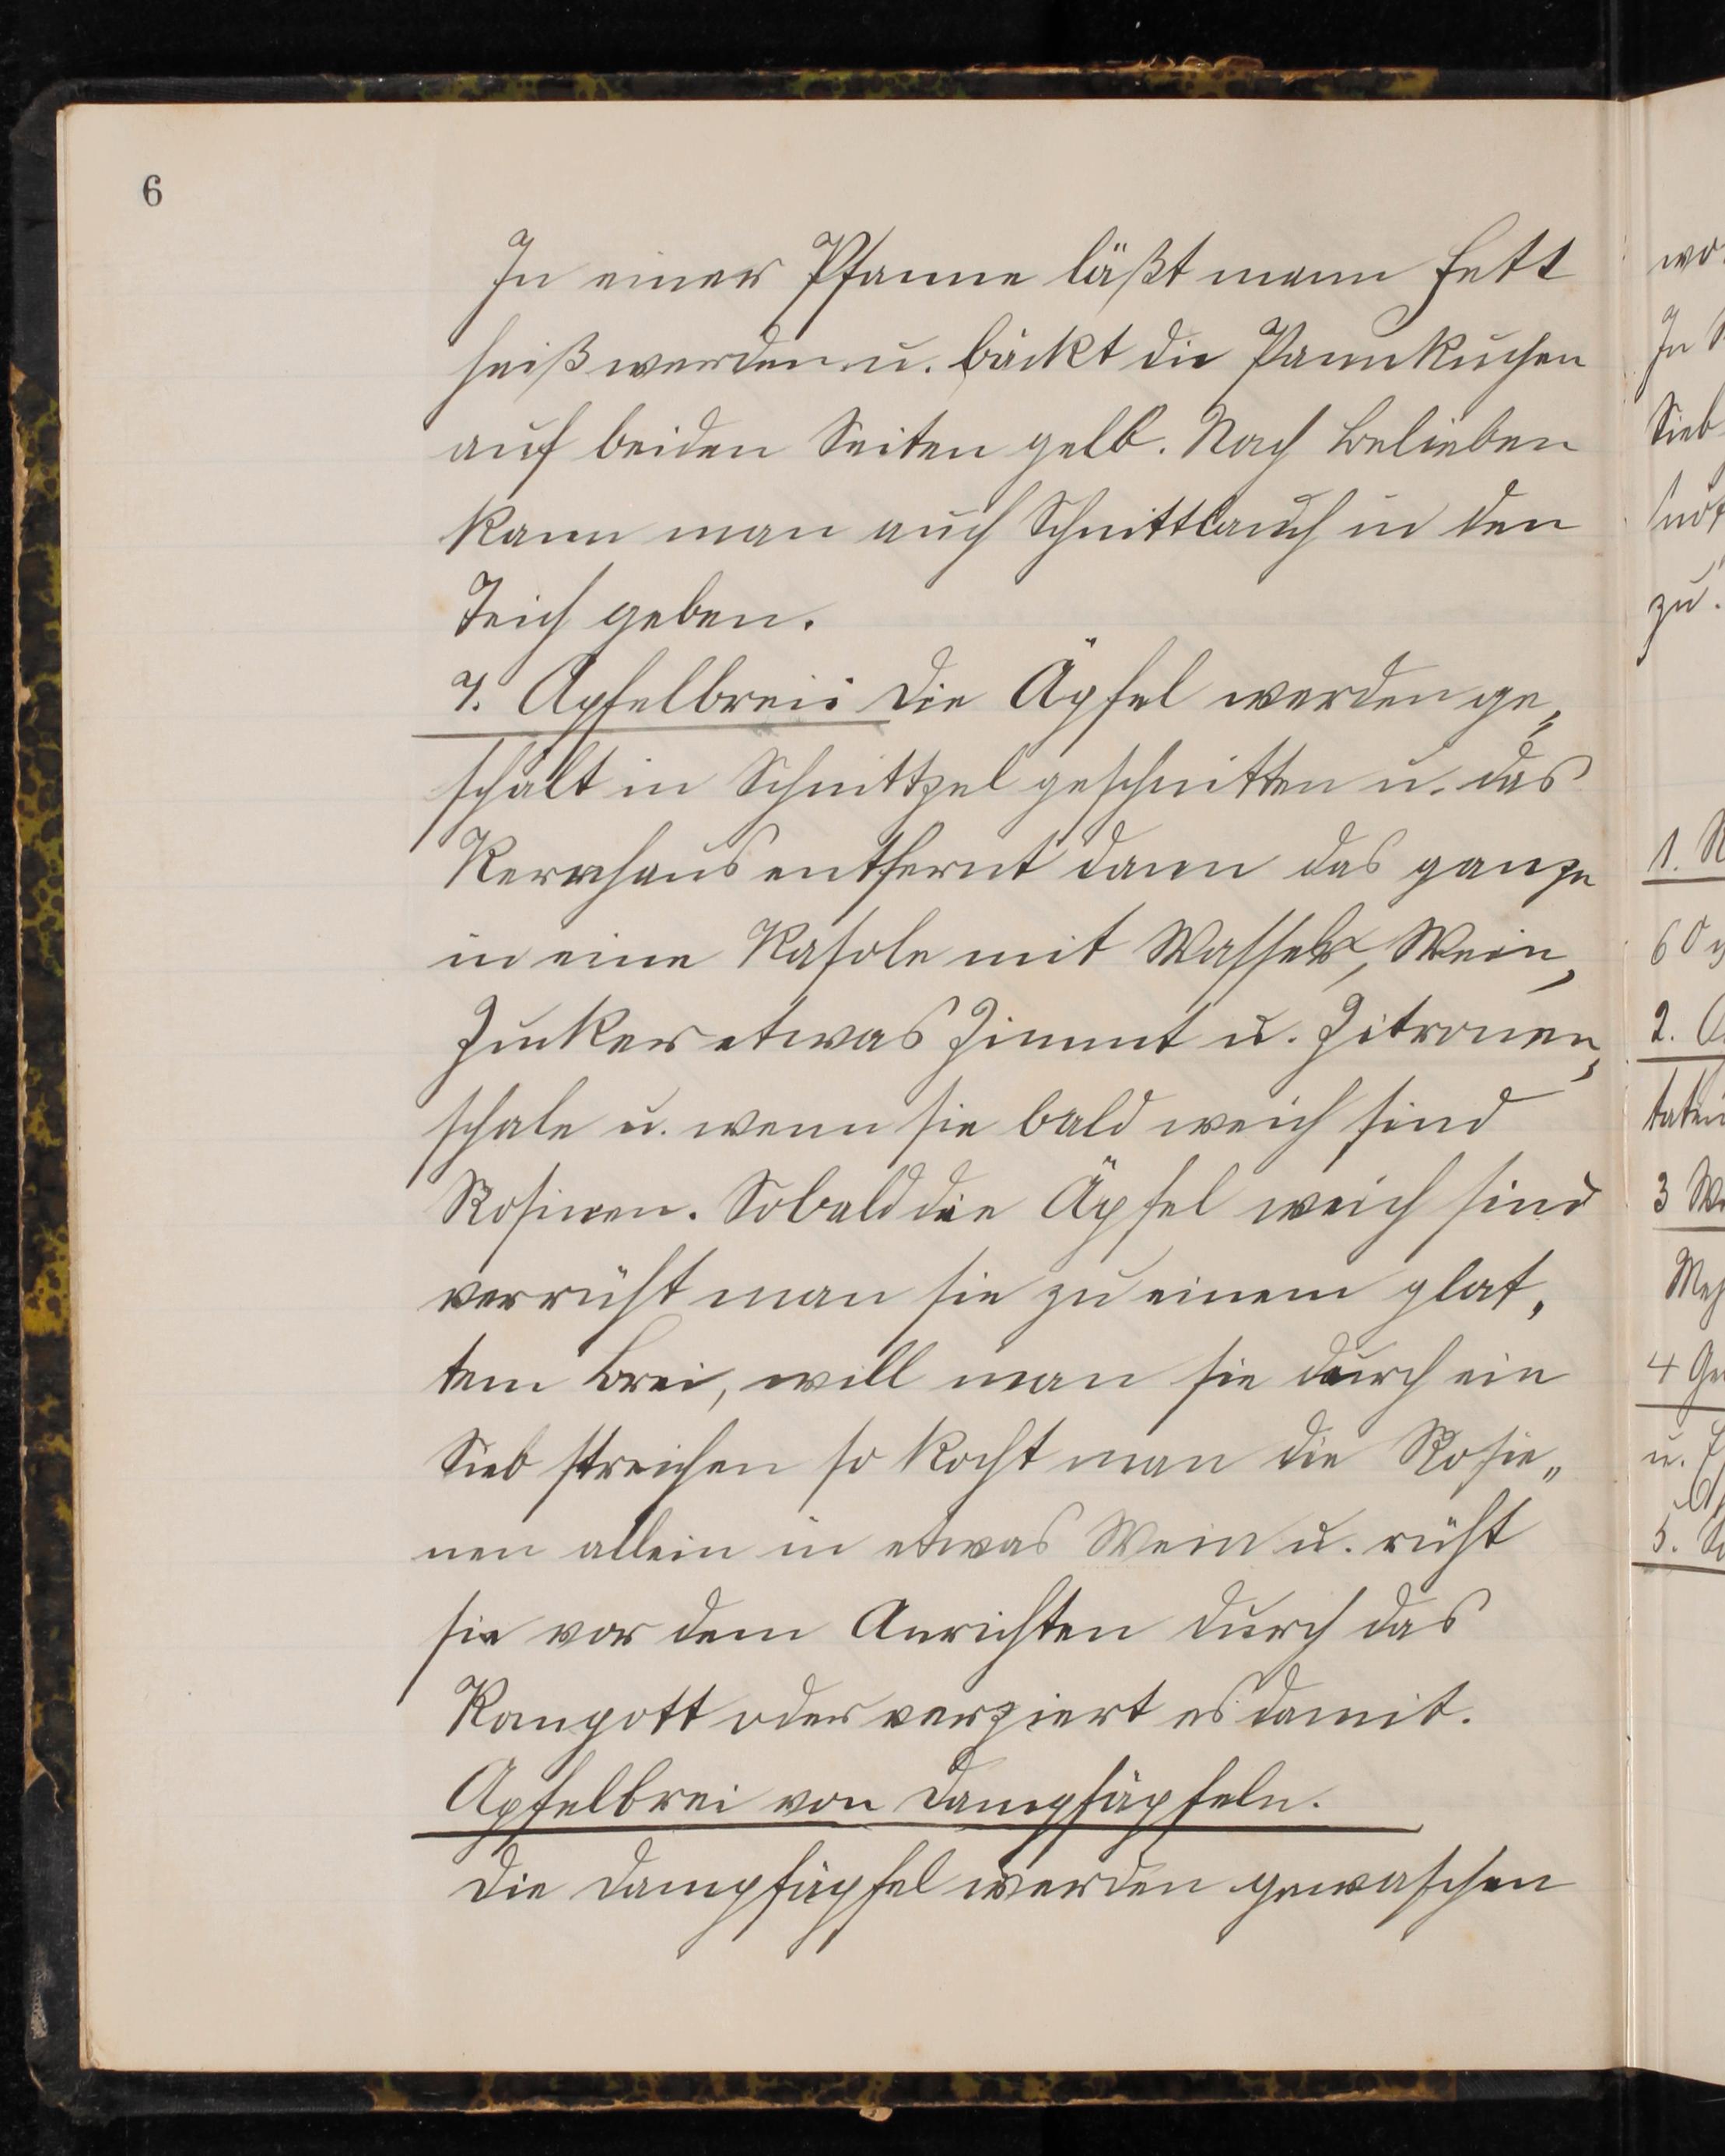 6
In einer Pfanne läßt mann Fett
heiß werden u. bäckt die Pannkuchen
auf beiden Seiten gelb. Nach Belieben
kann man auch Schnittlauch in den
Teich geben.
7. Apfelbrei: Die Äpfel werden ge-
schält in Schnittzel geschnitten u. das
Kernhaus entfernt dann das ganze
in eine Kasole mit Wasser, Wein,
Zucker etwas Zimmt u. Zitronen-
schale u. wenn sie bald weich sind
Rosinen. Sobald die Äpfel weich sind
verrührt man sie zu einem glat-
tem Brei, will man sie durch ein
Sieb streichen so kocht man die Rosie-
nen allein in etwas Wein u. rührt
sie vor dem Anrichten durch das
Kompott oder verziert es damit.
Apfelbrei von Dampfäpfeln.
Die Dampfäpfel werden gewaschen
wo
In
Sieb
zu.
1.
60
2.
3
4
u.
5.